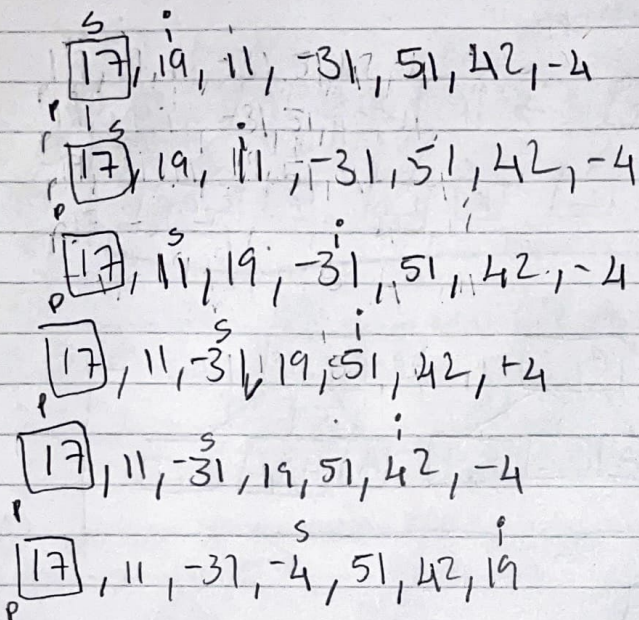 s i
17, 19, 11, -31, 51, 42, -4
p
s i
17, 19, 11, -31, 51, 42, -4
p
s i
17, 11, 19, -31, 51, 42, -4
p
s i
17, 11, -31, 19, 51, 42, -4
p
s i
17, 11, -31, 19, 51, 42, -4
p
s i
17, 11, -31, -4, 51, 42, 19
p